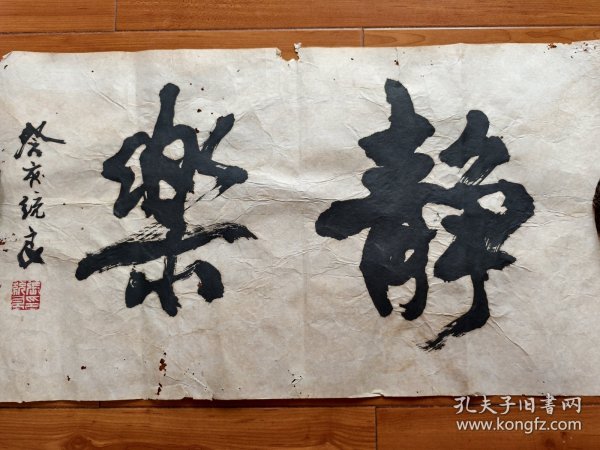 静樂
癸亥統良
孔夫子旧書网
www.kongfz.com